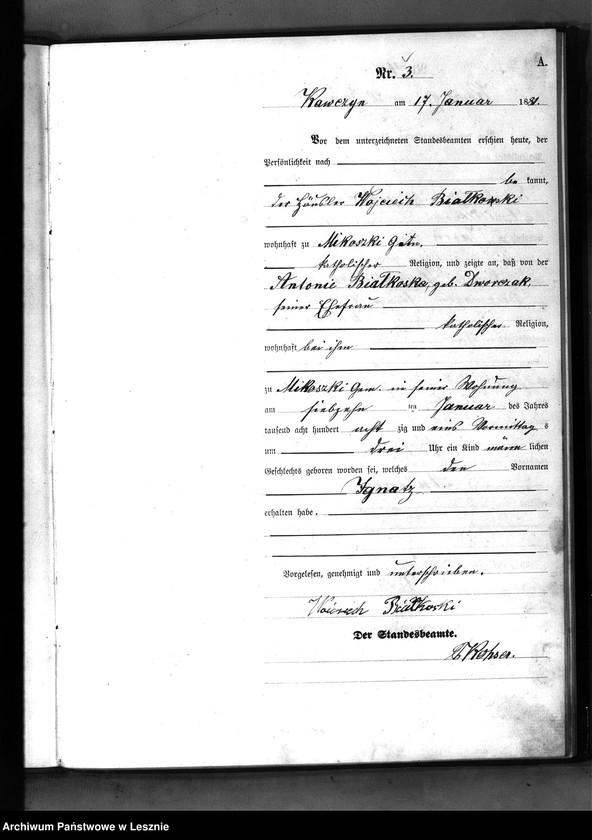 A.
Nr. 3.
Kawczyn am 17. Januar 1881.
Vor dem unterzeichneten Standesbeamten erschien heute, der
Persönlichkeit nach
be kannt,
der Häusler Wojciech Białkowski
wohnhaft zu Mikoszki Gem.
katholischer Religion, und zeigte an, daß von der
Antonie Białkoska, geb. Dworczak,
seiner Ehefrau
katholischer Religion,
wohnhaft bei ihm
zu Mikoszki Gem. in seiner Wohnung
am siebzehn ten Januar des Jahres
tausend acht hundert acht zig und eins Vormittag s
um drei Uhr ein Kind männ lichen
Geschlechts geboren worden sei, welches den Vornamen
Ignatz
erhalten habe.
Vorgelesen, genehmigt und unterschrieben.
Woiciech Białkoski
Der Standesbeamte.
Archiwum Państwowe w Lesznie